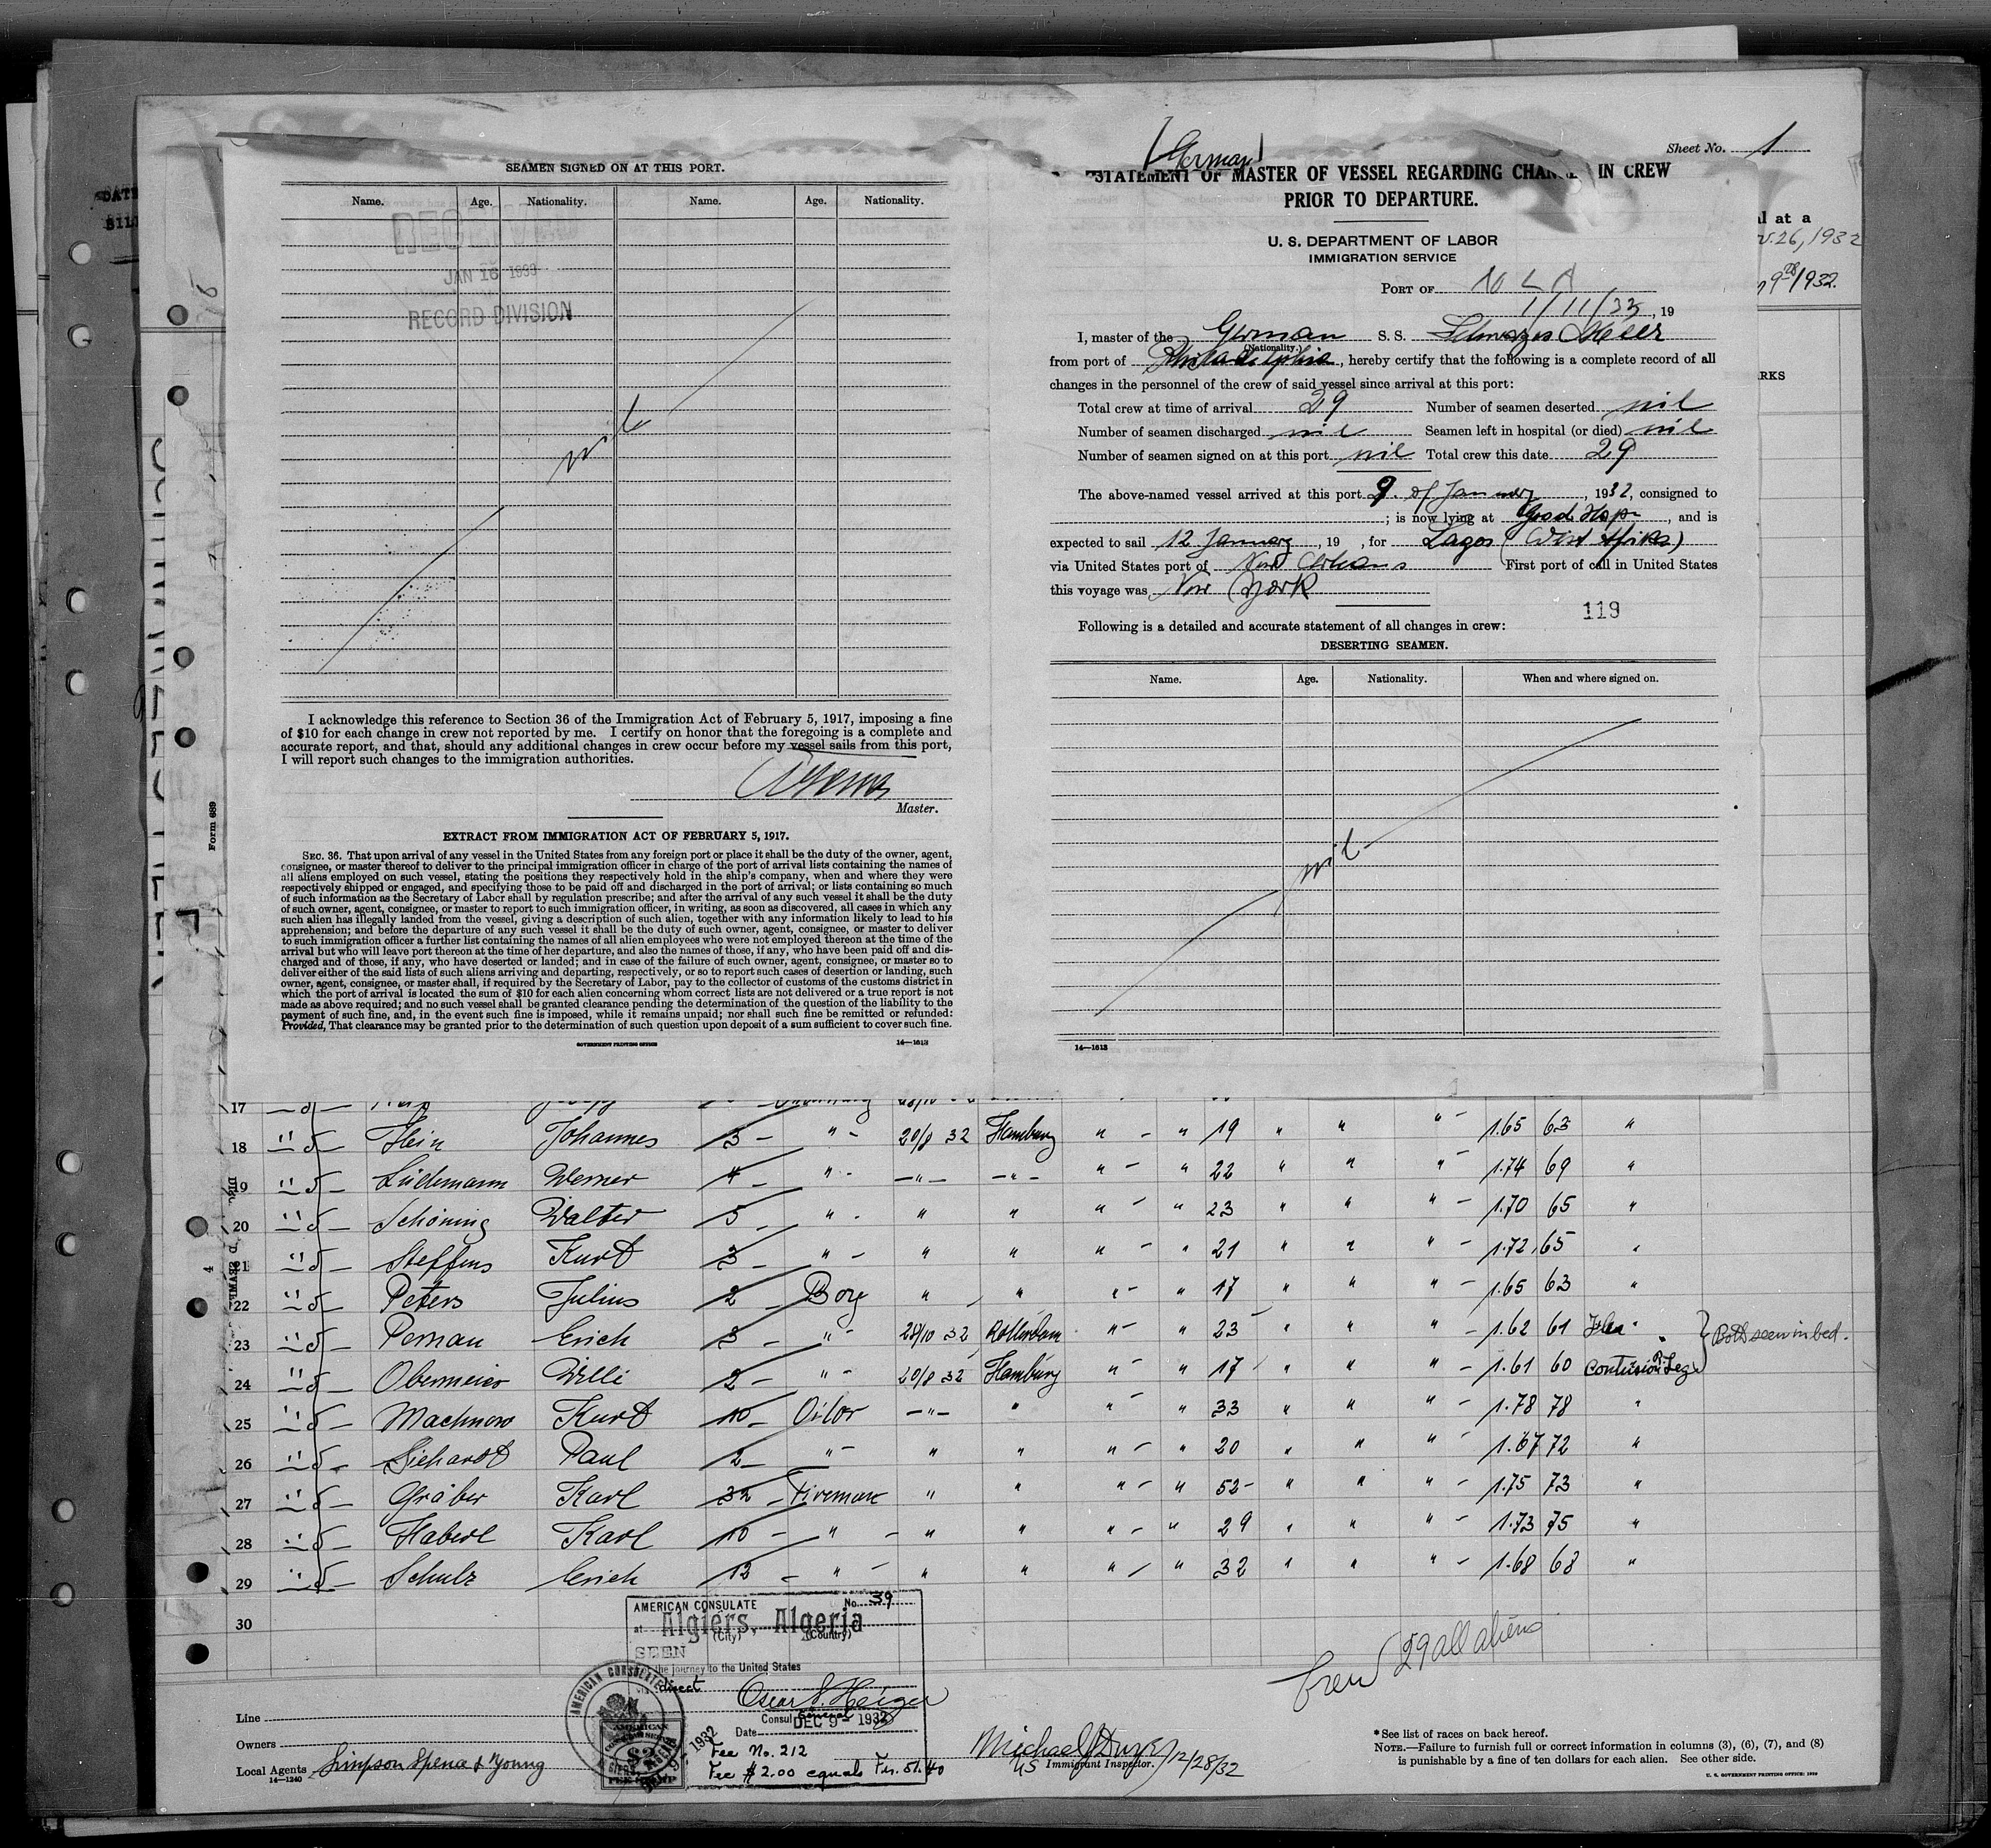 SEAMEN SIGNED ON AT THIS PORT.
Name. Age. Nationality. Name. Age. Nationality.
JAN 16 1933
RECORD DIVISION
nil
I acknowledge this reference to Section 36 of the Immigration Act of February 5, 1917, imposing a fine
of $10 for each change in crew not reported by me. I certify on honor that the foregoing is a complete and
accurate report, and that, should any additional changes in crew occur before my vessel sails from this port,
I will report such changes to the immigration authorities.
Master.
EXTRACT FROM IMMIGRATION ACT OF FEBRUARY 5, 1917.
SEC. 36. That upon arrival of any vessel in the United States from any foreign port or place it shall be the duty of the owner, agent,
consignee, or master thereof to deliver to the principal immigration officer in charge of the port of arrival lists containing the names of
all aliens employed on such vessel, stating the positions they respectively hold in the ship's company, when and where they were
respectively shipped or engaged, and specifying those to be paid off and discharged in the port of arrival; or lists containing so much
of such information as the Secretary of Labor shall by regulation prescribe; and after the arrival of any such vessel it shall be the duty
of such owner, agent, consignee, or master to report to such immigration officer, in writing, as soon as discovered, all cases in which any
such alien has illegally landed from the vessel, giving a description of such alien, together with any information likely to lead to his
apprehension; and before the departure of any such vessel it shall be the duty of such owner, agent, consignee, or master to deliver
to such immigration officer a further list containing the names of all alien employees who were not employed thereon at the time of the
arrival but who will leave port thereon at the time of her departure, and also the names of those, if any, who have been paid off and dis-
charged and of those, if any, who have deserted or landed; and in case of the failure of such owner, agent, consignee, or master so to
deliver either of the said lists of such aliens arriving and departing, respectively, or so to report such cases of desertion or landing, such
owner, agent, consignee, or master shall, if required by the Secretary of Labor, pay to the collector of customs of the customs district in
which the port of arrival is located the sum of $10 for each alien concerning whom correct lists are not delivered or a true report is not
made as above required; and no such vessel shall be granted clearance pending the determination of the question of the liability to the
payment of such fine, and, in the event such fine is imposed, while it remains unpaid; nor shall such fine be remitted or refunded:
Provided, That clearance may be granted prior to the determination of such question upon deposit of a sum sufficient to cover such fine.
GOVERNMENT PRINTING OFFICE 14—1613
Form 689
Sheet No. 1
(German)
STATEMENT OF MASTER OF VESSEL REGARDING CHANGE IN CREW
PRIOR TO DEPARTURE.
U. S. DEPARTMENT OF LABOR
IMMIGRATION SERVICE
PORT OF NOLA
1/11/33, 19
I, master of the German S. S. Schwarzes Meer
(Nationality.)
from port of Philadelphia, hereby certify that the following is a complete record of all
changes in the personnel of the crew of said vessel since arrival at this port:
Total crew at time of arrival 29 Number of seamen deserted nil
Number of seamen discharged nil Seamen left in hospital (or died) nil
Number of seamen signed on at this port nil Total crew this date 29
The above-named vessel arrived at this port 9. of January, 1932, consigned to
; is now lying at Good Hope, and is
expected to sail 12 January, 19 , for Lagos (West Afrika)
via United States port of New Orleans First port of call in United States
this voyage was New York
119
Following is a detailed and accurate statement of all changes in crew:
DESERTING SEAMEN.
Name. Age. Nationality. When and where signed on.
nil
14—1613
al at a
26, 1932
1932.
RKS
17
18 Hein Johannes 3 - " - 20/8 32 Hamburg " - " 19 " " " - 1.65 63 "
19 Lüdemann Werner 4 - " - —"— —"— " - " 22 " " " - 1.74 69 "
20 Schöning Walter 5 - " - " " " - " 23 " " " - 1.70 65 "
21 Steffens Kurt 3 - " - " " " - " 21 " " " - 1.72 65 "
22 Peters Julius 2 - Boy " " " - " 17 " " " - 1.65 63 "
23 Pernau Erich 3 - " - 28/10 32 Rotterdam " - " 23 " " " - 1.62 61 Both seen in bed.
24 Obermeier Willi 2 - " - 20/8 32 Hamburg " - " 17 " " " - 1.61 60 Contusion R. Leg
25 Machnow Kurt 10 - Oiler —"— " " - " 33 " " " - 1.78 78 "
26 Paul 2 - " - " " " - " 20 " " " - 1.67 72 "
27 Gräber Karl 32 - Fireman " " " - " 52 " " " - 1.75 73 "
28 Haberl Karl 10 - " - " " " - " 29 " " " - 1.73 75 "
29 Schulz Erich 12 - " - " " " - " 32 " " " - 1.68 68 "
30
AMERICAN CONSULATE No. 39
at Algiers, Algeria
(City) (Country)
SEEN
the journey to the United States
direct
Consul General
Date DEC 9 - 1932
Fee No. 212
Fee $2.00 equals Frs. 51.40
AMERICAN CONSULATE
Crew 29 all aliens
Line
Owners
Local Agents Simpson Spence & Young
14—1240
12/28/32
US Immigrant Inspector.
*See list of races on back hereof.
NOTE.—Failure to furnish full or correct information in columns (3), (6), (7), and (8)
is punishable by a fine of ten dollars for each alien. See other side.
U. S. GOVERNMENT PRINTING OFFICE: 1930